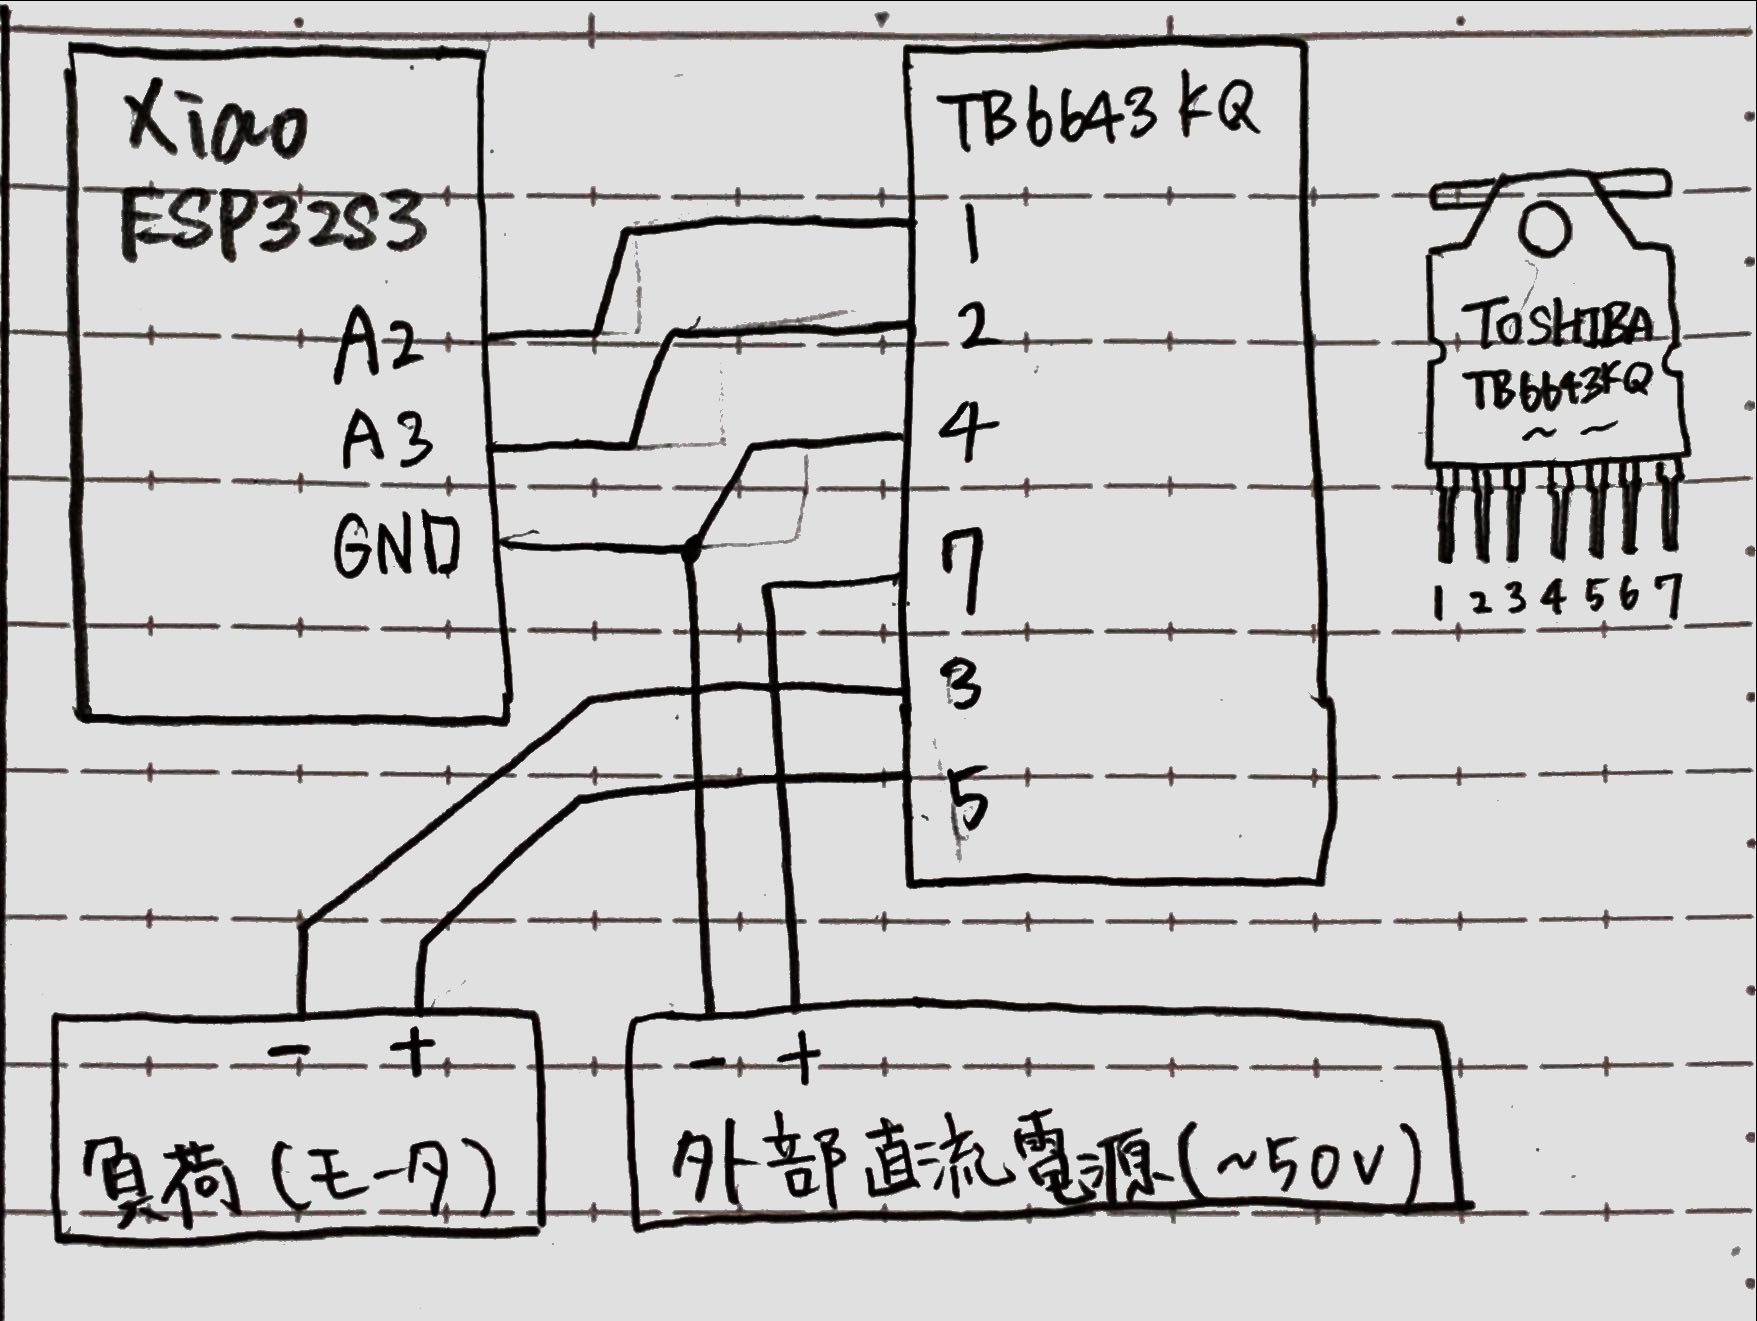 Xiao
ESP32S3
A2
A3
GND
TB6643KQ
1
2
4
7
3
5
TOSHIBA
TB6643KQ
~ ~
1 2 3 4 5 6 7
- +
負荷(モータ)
- +
外部直流電源(~50V)